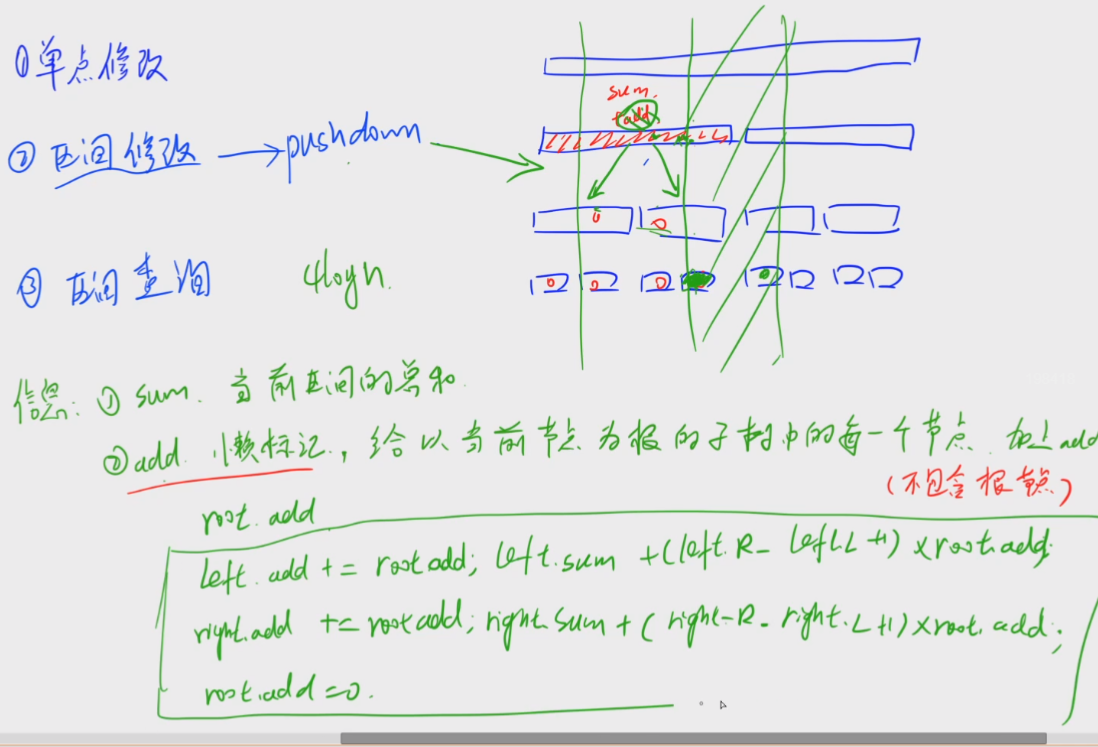 ①单点修改
sum.
add
②区间修改 → pushdown
0 0
③区间查询 4logn.
0 0 0
信息: ① sum. 当前区间的总和.
②add. 懒标记, 给以当前节点为根的子树中的每一个节点, 加上add
(不包含根节点)
root.add
left.add += root.add; left.sum +(left.R - left.L +1)×root.add;
right.add += root.add; right.sum + (right-R - right.L+1)×root.add;
root.add=0.